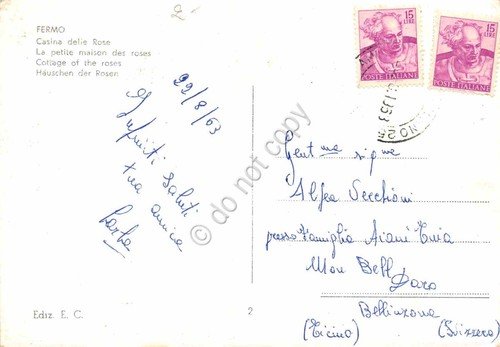 2-
FERMO
Casina delle Rose
La petite maison des roses
Cottage of the roses
Häuschen der Rosen
15
LIRE
POSTE ITALIANE
15
LIRE
POSTE ITALIANE
22/8/63
Infiniti saluti
tua amica
Carla
Gent ma sig na
Alfea Secchioni
presso Famiglia
Mon Bell
Daro
Bellinzona
(Ticino) (Svizzera)
Ediz. E. C.
2
© do not copy